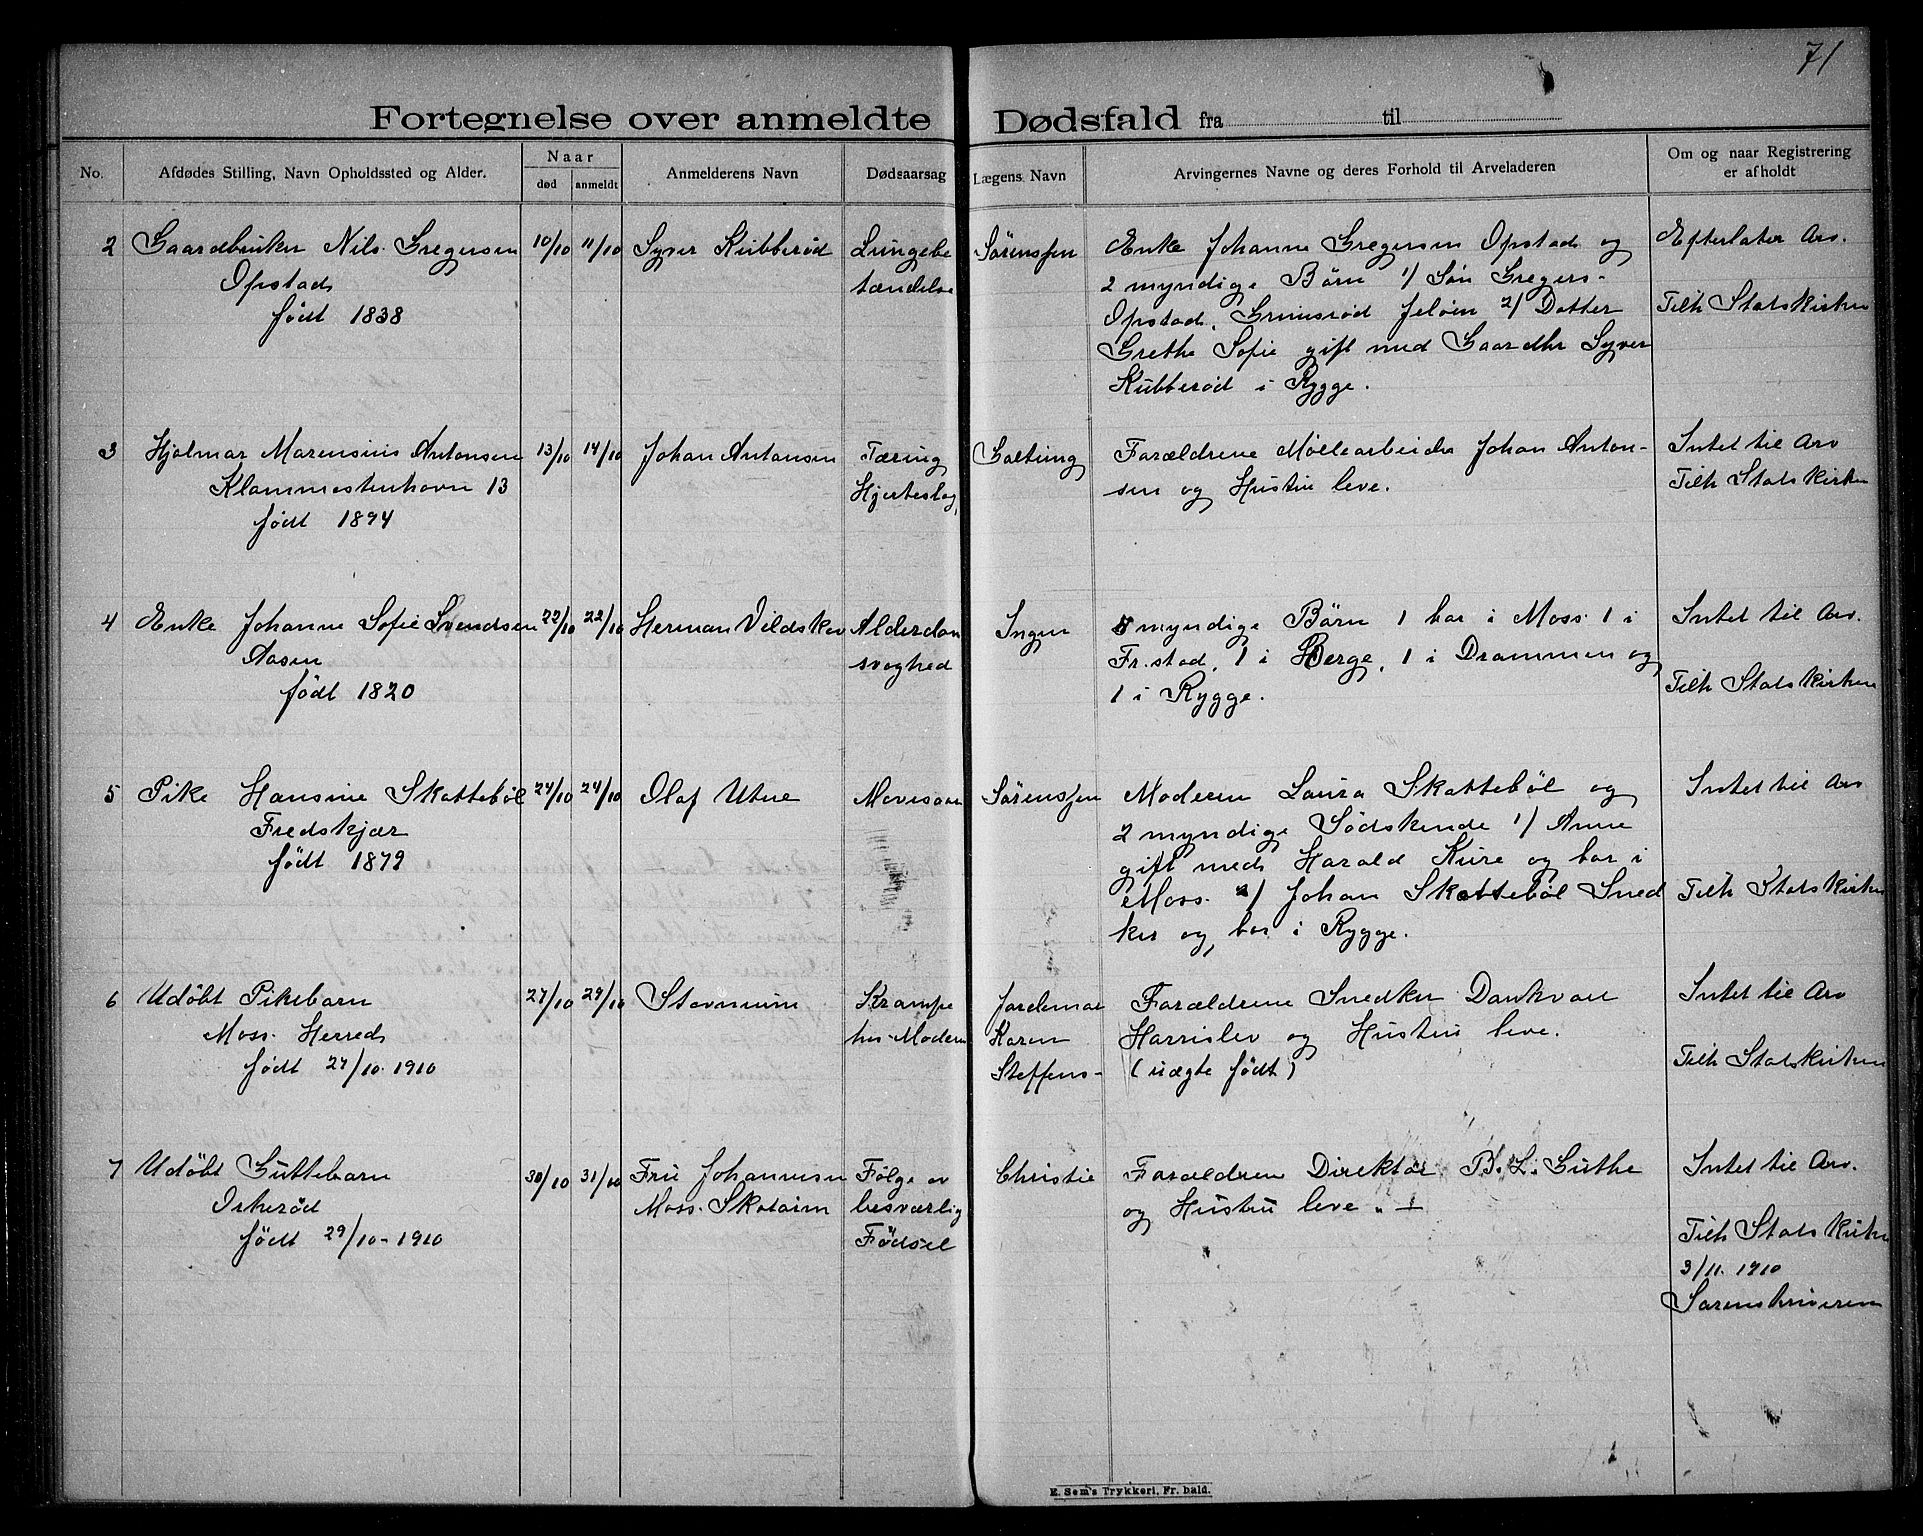 71
Fortegnelse over anmeldte Dødsfald fra til
No.
Afdødes Stilling, Navn Opholdssted og Alder.
Naar
død
anmeldt
Anmelderens Navn
Dødsaarsag
Lægens Navn
Arvingernes Navne og deres Forhold til Arveladeren
Om og naar Registrering
er afholdt
2
Gaardbruker Nils Gregersen
Opstad
født 1838
10/10
11/10
Syver Kubberød
Lungebe
tændelse
Sørenssen
Enke Johanne Gregersen Opstad og
2 myndige Børn 1/ Søn Gregers
Opstad, Grimsrød Jeløen 2/ Datter
Grethe Sofie gift med Gaardbr Syver
Kubberød i Rygge.
Efterlater Arv.
Tilh Statskirken
3
Hjalmar Marensius Antonsen
Klommestenhavn 13
født 1894
13/10
14/10
Johan Antonsen
Tæring
Hjerteslag
Galtung
Forældrene Møllearbeider Johan Anton-
sen og Hustru leve.
Intet til Arv
Tilh Statskirken
4
Enke Johanne Sofie Svendsen
Aasen
født 1820
22/10
22/10
Herman Vildskev
Alderdom
svaghed
Ingen
5 myndige Børn 1 bor i Moss. 1 i
Fr.stad, 1 i Berge, 1 i Drammen og
1 i Rygge.
Intet til Arv.
Tilh Statskirken
5
Pike Hansine Skattebøl
Fredskjær
født 1879
24/10
24/10
Olaf Utne
Mavesaar
Sørenssen
Moderen Laura Skattebøl og
2 myndige Sødskende 1/ Anne
gift med Harald Kure og bor i
Moss. 2/ Johan Skattebøl Sned
ker og bor i Rygge.
Intet til Arv
Tilh Statskirken
6
Udøbt Pikebarn
Moss. Herred
født 27/10. 1910
27/10
29/10
Stavnum
Krampe
hos Moderen
Jordemor
Karen
Steffens-
Forældrene Snedker Dankvart
Harrislev og Hustru leve.
(uægte født)
Intet til Arv
Tilh Statskirken
7
Udøbt Guttebarn
Orkerød
født 29/10-1910
30/10
31/10
Fru Johannesen
Moss. Skotoirn
Følge av
besværlig
Fødsel
Christie
Forældrene Direktør B. L. Guthe
og Hustru leve.
Intet til Arv.
Tilh Statskirken
3/11. 1910
Sorenskriveren
E. Sem's Trykkeri, Fr.hald.